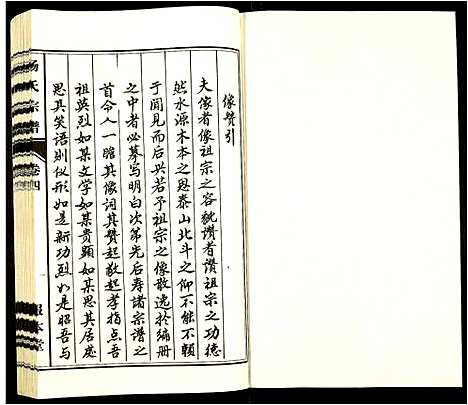 像贊引
夫像者像祖宗之容貌讚者讚祖宗之功德
然水源木本之恩泰山北斗之仰不能不賴
于聞見而后兴若予祖宗之像散逸於编册
之中者必摹写明白次第先后寿諸宗谱之
首令人一瞻其像词其贊起敬起孝指点吾
祖英烈如某文学如某贵顯如某思其居处
思其笑语则仪形如是新功烈如是昭吾与
杨氏宗谱
卷四
報本堂